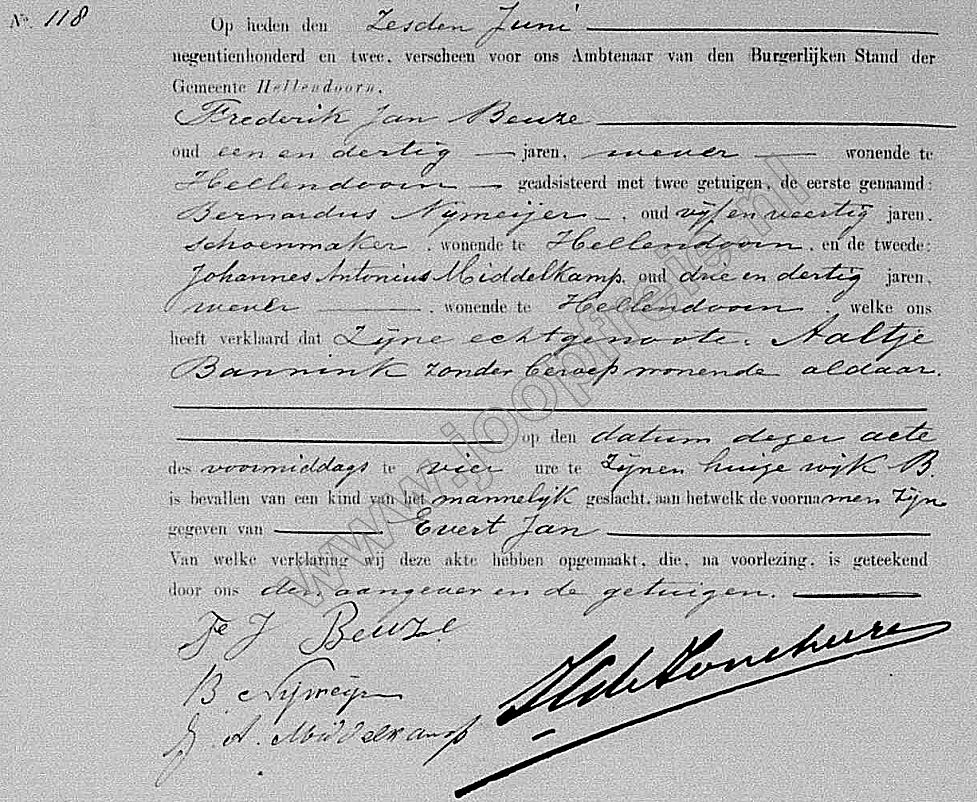 No. 118
Op heden den Zesden Juni
negentienhonderd en twee, verscheen voor ons Ambtenaar van den Burgerlijken Stand der
Gemeente Hellendoorn,
Frederik Jan Beuze
oud een en dertig jaren, wever wonende te
Hellendoorn geadsisteerd met twee getuigen, de eerste genaamd:
Bernardus Nijmeijer, oud vijf en veertig jaren,
schoenmaker, wonende te Hellendoorn, en de tweede:
Johannes Antonius Middelkamp, oud drie en dertig jaren,
wever, wonende te Hellendoorn, welke ons
heeft verklaard dat Zijne echtgenoote, Aaltje
Bannink zonder beroep wonende aldaar.
op den datum dezer acte
des voormiddags te vier ure te Zijnen huize wijk B.
is bevallen van een kind van het mannelijk geslacht, aan hetwelk de voornamen zijn
gegeven van Evert Jan
Van welke verklaring wij deze akte hebben opgemaakt, die, na voorlezing, is geteekend
door ons den aangever en de getuigen.
Fe J Beuze
B. Nijmeijer
J. A. Middelkamp
www.joopfreje.nl